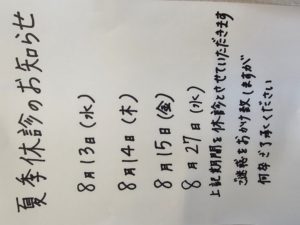 夏季休診のお知らせ
8月13日(水)
8月14日(木)
8月15日(金)
8月27日(水)
上記期間を休診とさせていただきます
ご迷惑をおかけ致しますが
何卒ご了承ください